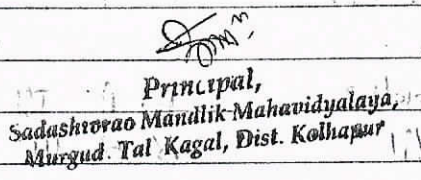 Principal,
Sadashivrao Mandlik Mahavidyalaya,
Murgud. Tal Kagal, Dist. Kolhapur